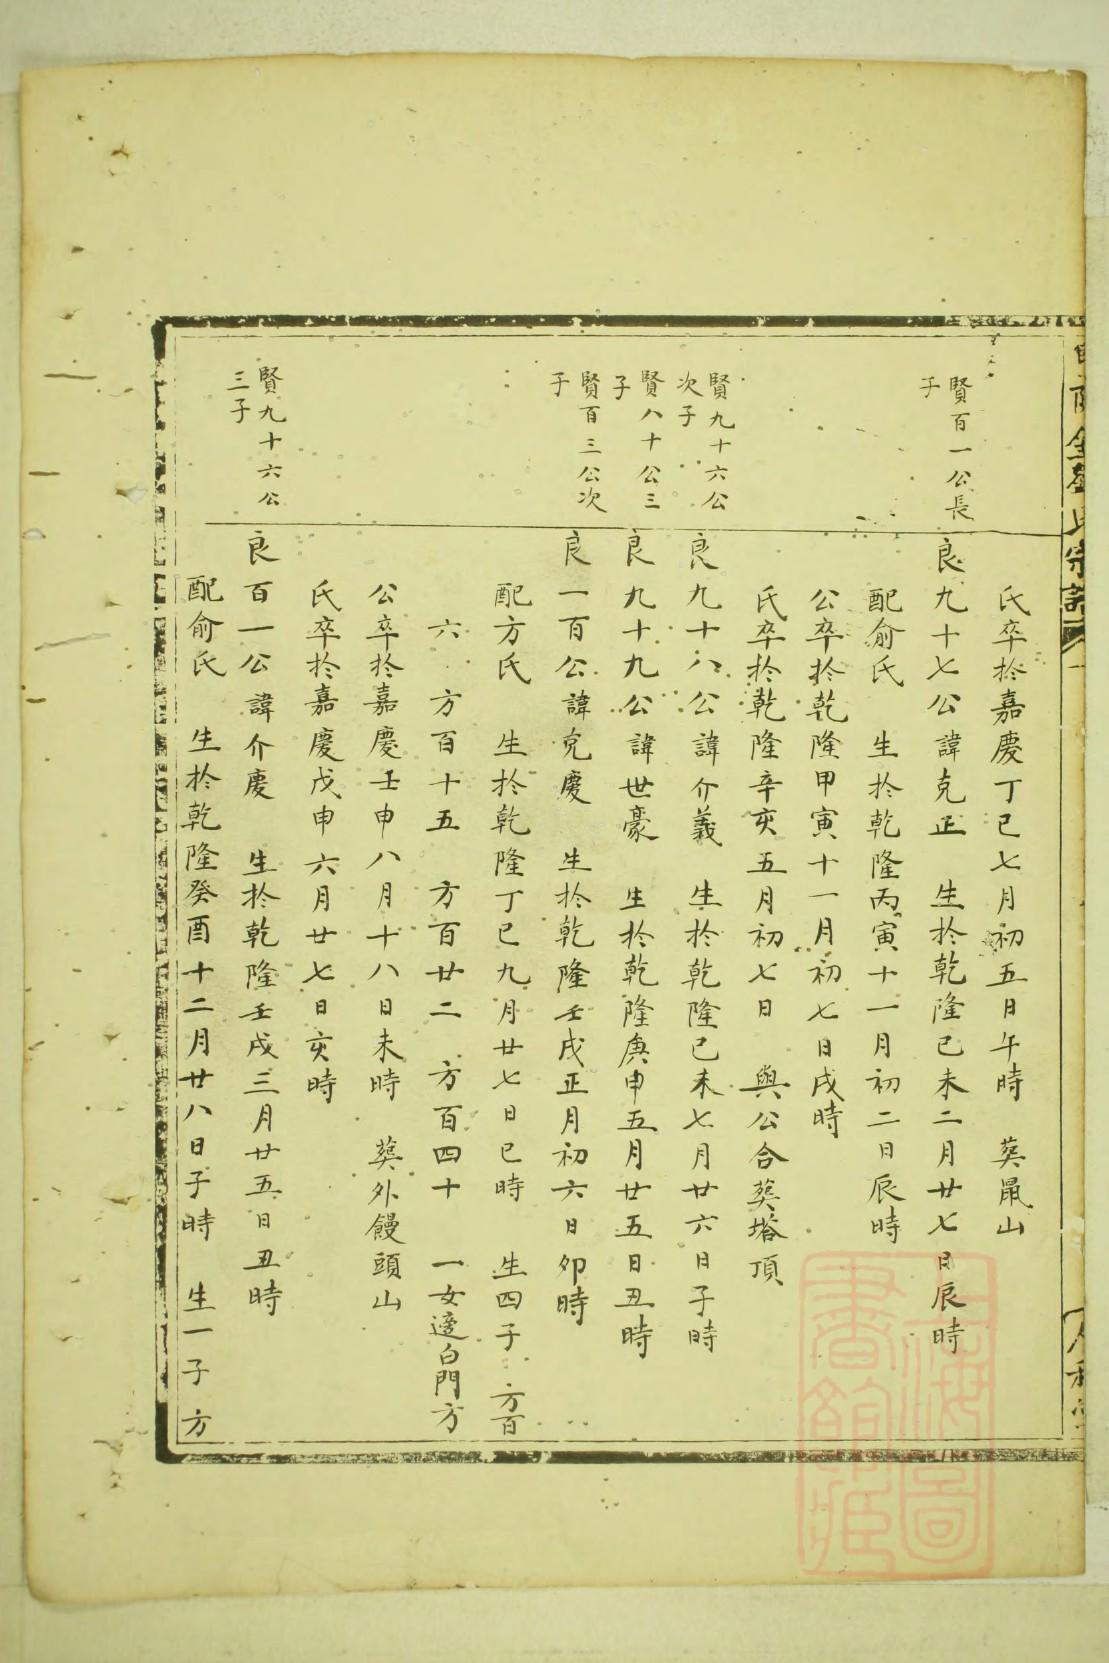 氏卒於嘉慶丁巳七月初五日午時 葬鼠山
賢百一公長
子
良九十七公諱克正 生於乾隆己未二月廿七日辰時
配俞氏 生於乾隆丙寅十一月初二日辰時
公卒於乾隆甲寅十一月初七日戌時
氏卒於乾隆辛亥五月初七日 與公合葬塔頂
賢九十六公
次子
良九十八公諱介義 生於乾隆己未七月廿六日子時
賢八十公三
子
良九十九公諱世豪 生於乾隆庚申五月廿五日丑時
賢百三公次
子
良一百公諱克慶 生於乾隆壬戌正月初六日卯時
配方氏 生於乾隆丁巳九月廿七日巳時 生四子 方百
六 方百十五 方百廿二 方百四十 一女適白門方
公卒於嘉慶壬申八月十八日未時 葬外饅頭山
氏卒於嘉慶戊申六月廿七日亥時
賢九十六公
三子
良百一公諱介慶 生於乾隆壬戌三月廿五日丑時
配俞氏 生於乾隆癸酉十二月廿八日子時 生一子 方
上海圖
書館藏